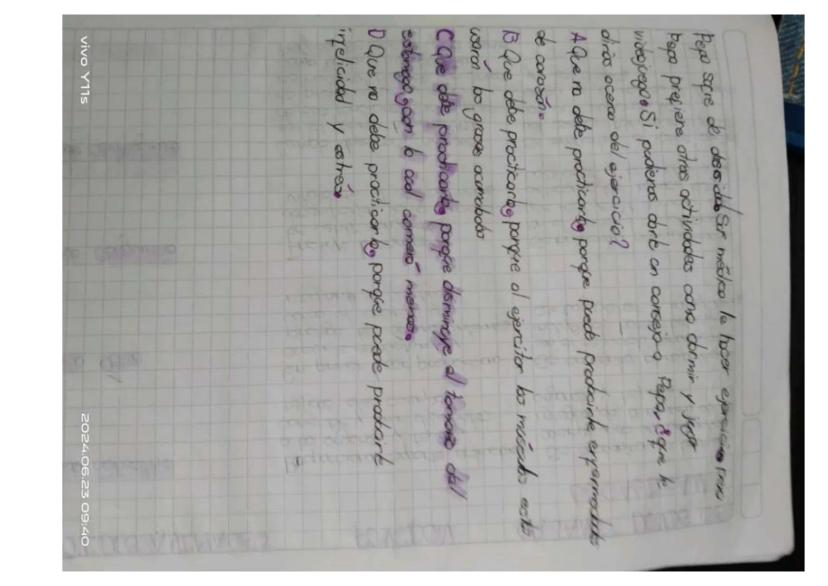 Pepo sufre de obesidad Su médico le hacer ejercicio, pero
Pepo prefiere otras actividades como dormir y jugar
videojuegos. Si pudieras darle un consejo a Pepo, ¿que le
dirías acerca del ejercicio?
A Que no debe practicarlo, porque puede producirle enfermedades
de corazón.
B Que debe practicarlo, porque al ejercitar los músculos estos
usarán las grasas acumuladas
C Que debe practicarlo, porque disminuye el tamaño del
estomago, con lo cual comerá menos.
D Que no debe practicarlo, porque puede producirle
infelicidad y estrés.
vivo Y11s
2024.06.23 09:40